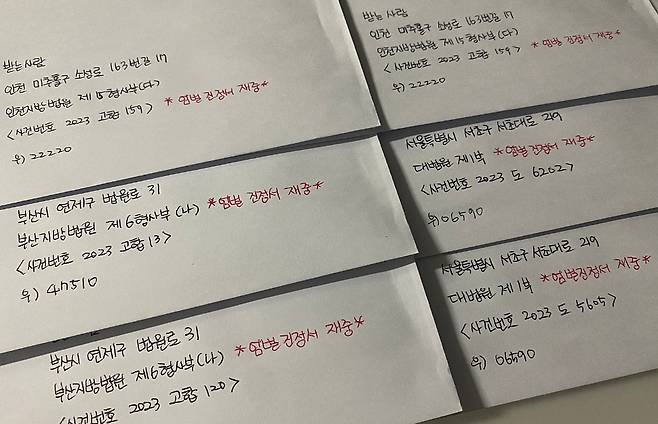 받는사람
인천 미추홀구 소성로 163번길 17
인천지방법원 제15형사부(다)
<사건번호 2023 고합 159> *엄벌 진정서 재중*
우) 22220
받는사람
인천 미추홀구 소성로 163번길 17
인천지방법원 제15형사부(다)
<사건번호 2023 고합 159> *엄벌 진정서 재중*
우) 22220
부산시 연제구 법원로 31
부산지방법원 제6형사부(나) *엄벌 진정서 재중*
<사건번호 2023 고합 13>
우) 47510
서울특별시 서초구 서초대로 219
대법원 제1부 *엄벌진정서 재중*
<사건번호 2023 도 6202>
우) 06590
부산시 연제구 법원로 31
부산지방법원 제6형사부(나) *엄벌진정서 재중*
<사건번호 2023 고합 120>
서울특별시 서초구 서초대로 219
대법원 제1부 *엄벌진정서 재중*
<사건번호 2023 도 5605>
우) 06590